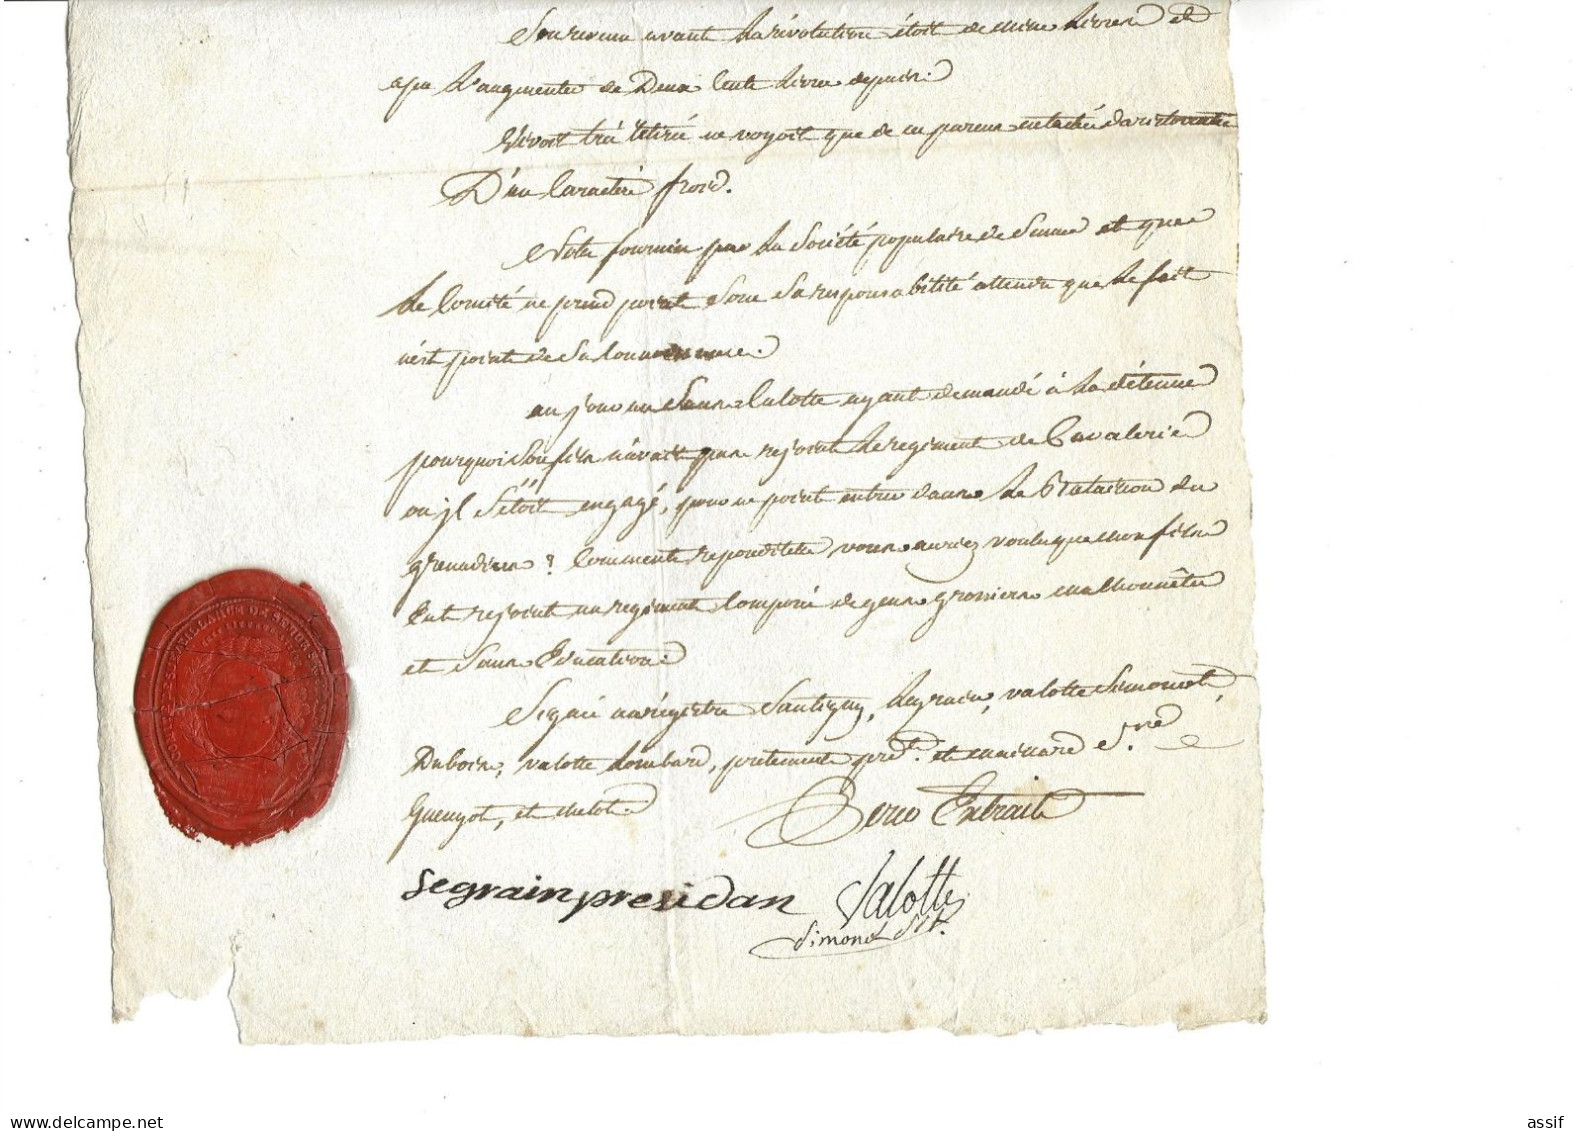 Son revenu avant la révolution étoit de mille livres et
a pu l'augmenter de Deux Cents Livres depuis.
Vivoit très retiré ne voyoit que de ses parens entachés d'aristocratie
D'un Caractère froid.
Note fournie par la Société populaire de Semur et que
le Comité ne prend point sous sa responsabilité attendu que le fait
n'est point de sa connoissance.
un jour un Sans Culotte ayant demandé à la détenue
pourquoi son fils n'avait pas rejoint le regiment de Cavalerie
ou il s'étoit engagé, pour ne point entrer dans le Bataillon des
grenadiers? Comment repondit elle vous auriez voulu que mon fils
Eut rejoint un regiment Composé de gens grossiers malhonnêtes
et Sans Education.
Signé au régistre Santigny, Segrain, valotte Simonot,
Dubois, valotte Lombard, potement prést. et mainard Sre
Gueugot, et melot.
Pour Extrait
Segrain presidan Valotte
Simonot Srt.
COMITÉ DE SURVEILLANCE DE SEMUR
delcampe.net
assif